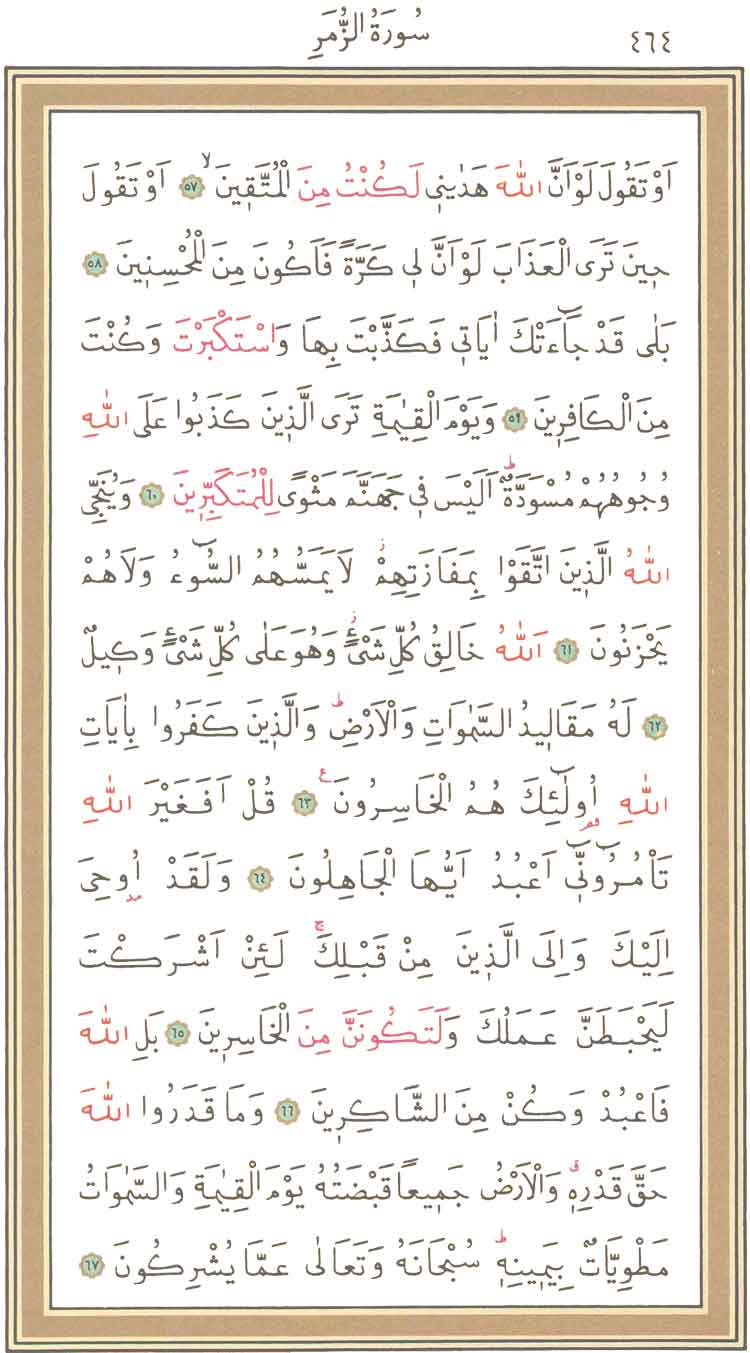 سُورَةُ الزُّمَرِ ٤٦٤
اَوْ تَقُولَ لَوْ اَنَّ اللّٰهَ هَدٰينٖى لَكُنْتُ مِنَ الْمُتَّقٖينَۙ ٥٧ اَوْ تَقُولَ
حٖينَ تَرَى الْعَذَابَ لَوْ اَنَّ لٖى كَرَّةً فَاَكُونَ مِنَ الْمُحْسِنٖينَ ٥٨
بَلٰى قَدْ جَٓاءَتْكَ اٰيَاتٖى فَكَذَّبْتَ بِهَا وَاسْتَكْبَرْتَ وَكُنْتَ
مِنَ الْكَافِرٖينَ ٥٩ وَيَوْمَ الْقِيٰمَةِ تَرَى الَّذٖينَ كَذَبُوا عَلَى اللّٰهِ
وُجُوهُهُمْ مُسْوَدَّةٌؕ اَلَيْسَ فٖى جَهَنَّمَ مَثْوًى لِلْمُتَكَبِّرٖينَ ٦٠ وَيُنَجِّى
اللّٰهُ الَّذٖينَ اتَّقَوْا بِمَفَازَتِهِمْؗ لَا يَمَسُّهُمُ السُّٓوءُ وَلَا هُمْ
يَحْزَنُونَ ٦١ اَللّٰهُ خَالِقُ كُلِّ شَیْءٍؗ وَهُوَ عَلٰى كُلِّ شَیْءٍ وَكٖيلٌ
٦٢ لَهُ مَقَالٖيدُ السَّمٰوَاتِ وَالْاَرْضِؕ وَالَّذٖينَ كَفَرُوا بِاٰيَاتِ
اللّٰهِ اُو۬لٰٓئِكَ هُمُ الْخَاسِرُونَ ٦٣ ع قُلْ اَفَغَيْرَ اللّٰهِ
تَاْمُرُٓونّٖٓى اَعْبُدُ اَيُّهَا الْجَاهِلُونَ ٦٤ وَلَقَدْ اُو۫حِىَ
اِلَيْكَ وَاِلَى الَّذٖينَ مِنْ قَبْلِكَۚ لَئِنْ اَشْرَكْتَ
لَيَحْبَطَنَّ عَمَلُكَ وَلَتَكُونَنَّ مِنَ الْخَاسِرٖينَ ٦٥ بَلِ اللّٰهَ
فَاعْبُدْ وَكُنْ مِنَ الشَّاكِرٖينَ ٦٦ وَمَا قَدَرُوا اللّٰهَ
حَقَّ قَدْرِهٖۗ وَالْاَرْضُ جَمٖيعًا قَبْضَتُهُ يَوْمَ الْقِيٰمَةِ وَالسَّمٰوَاتُ
مَطْوِيَّاتٌ بِيَمٖينِهٖؕ سُبْحَانَهُ وَتَعَالٰى عَمَّا يُشْرِكُونَ ٦٧